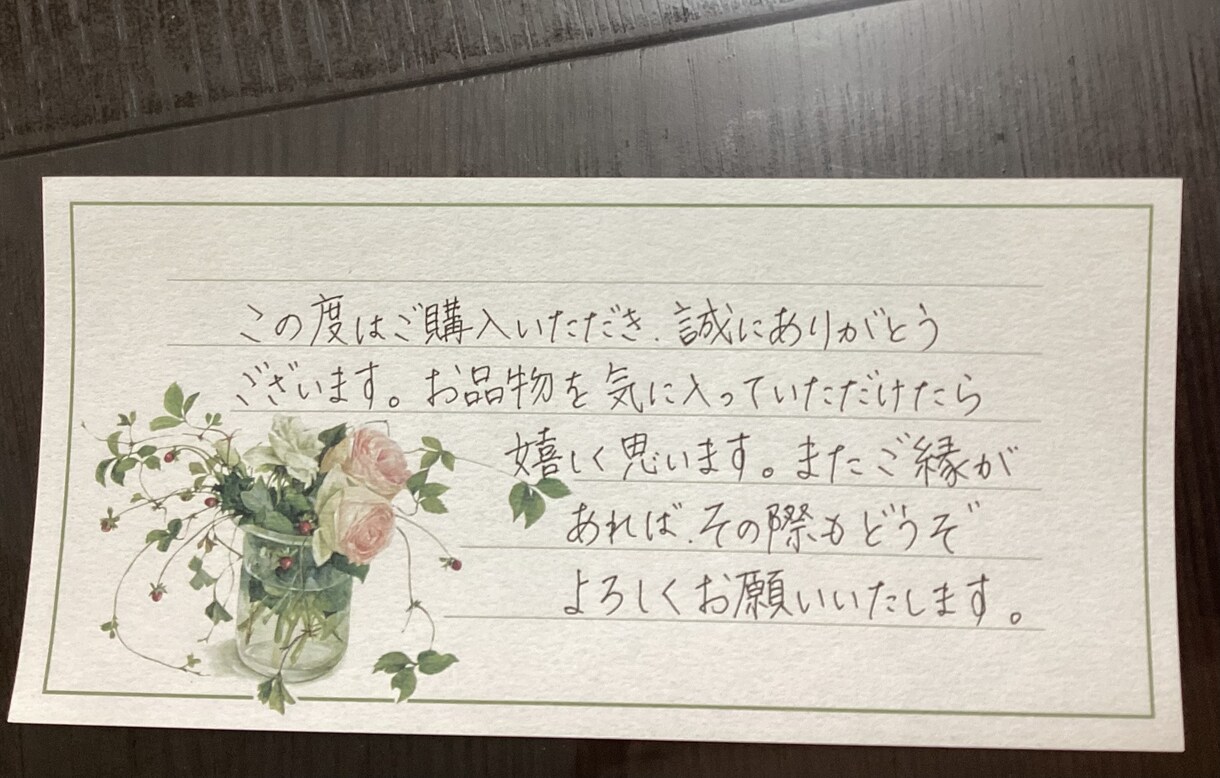 この度はご購入いただき、誠にありがとう
ございます。お品物を気に入っていただけたら
嬉しく思います。またご縁が
あれば、その際もどうぞ
よろしくお願いいたします。